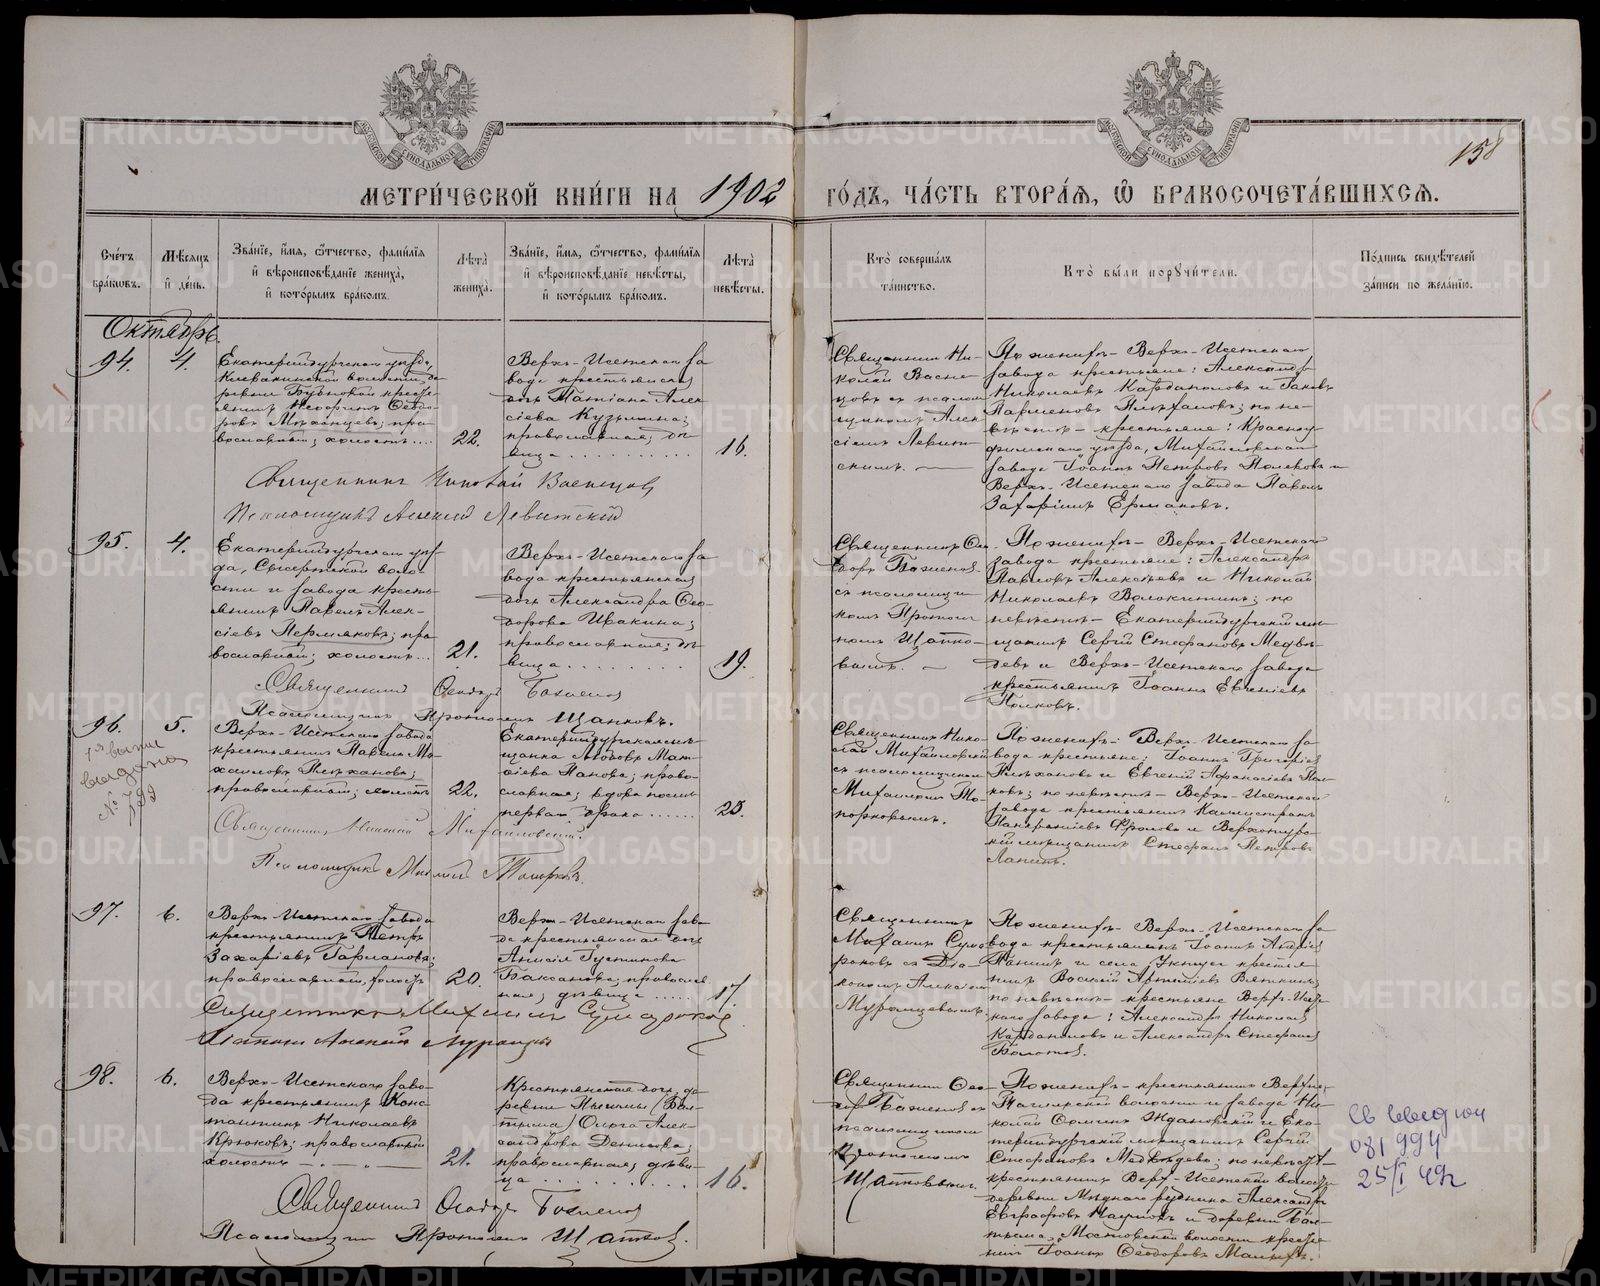 158
МЕТРИ́ЧЕСКОЙ КНИ́ГИ НА 1902 ГО́ДЪ, ЧА́СТЬ ВТОРА́Я, Ѿ БРАКОСОЧЕТА́ВШИХСЯ.
Сче́тъ бра́ковъ.
Мѣ́сяцъ и҆ де́нь.
Зва́нїе, и҆́мя, ѻ҆́тчество, фами́лїя
и҆ вѣроисповѣ́данїе жениха̀,
и҆ кото́рымъ бра́комъ.
Лѣта̀ жениха̀.
Зва́нїе, и҆́мя, ѻ҆́тчество, фами́лїя
и҆ вѣроисповѣ́данїе невѣ́сты,
и҆ кото́рымъ бра́комъ.
Лѣта̀ невѣ́сты.
Кто̀ соверша́лъ
та́инство.
Кто̀ бы́ли порꙋчи́тели.
По́дпись свидѣ́телей
за́писи по жела́нїю.
Октябрь.
94.
4.
Екатеринбургскаго уѣзда,
православный; холостъ....
22.
Верхъ-Исетскаго за
вода крестьянская
дочь Татіана Алек
сіева Кузьмина;
православная, дѣ
вица..........
16.
Священникъ Ни-
колай Васне
цовъ съ псалом
щикомъ Алек
сіемъ Левит-
скимъ.
По женихѣ - Верхъ-Исетскаго
завода крестьяне: Александръ
Николаевъ Кардаполовъ и Іаковъ
по не-
вѣстѣ - крестьяне: Красноу-
фимскаго уѣзда, Михайловскаго
завода Іоаннъ Петровъ Поляковъ и
Верхъ-Исетскаго завода Павелъ
Захаріинъ Ермаковъ.
Священникъ Николай Васнецовъ
Псаломщикъ Алексій Левитскій
95.
4.
Екатеринбургскаго уѣз-
да, Сысертской воло-
сти и завода кресть-
янинъ Павелъ Алек-
сіевъ Пермяковъ; пра
вославный; холостъ...
21.
Верхъ-Исетскаго за
вода крестьянская
дочь Александра Ѳео-
дорова Ивакина;
православная; дѣ
вица........
19.
Священникъ Ѳео
доръ Баженовъ
съ псаломщи
комъ Прокопі
емъ Щапко-
вымъ.
По женихѣ - Верхъ-Исетскаго
завода крестьяне: Александръ
Павловъ Алексѣевъ и Николай
Николаевъ Волокитинъ; по
невѣстѣ - Екатеринбургскій мѣ-
щанинъ Сергій Стефановъ Медвѣ-
девъ и Верхъ-Исетскаго завода
крестьянинъ Іоаннъ Евгеніевъ
Священникъ Ѳеодоръ Баженовъ
Псаломщикъ Прокопій Щапковъ.
96.
5.
выдана
№ 799
Верхъ-Исетскаго завода
крестьянинъ Павелъ Ми-
хаиловъ Плѣхановъ;
православный; холостъ
22.
Екатеринбургская мѣ-
щанка Любовь Мат-
ѳіева Панова; право-
славная; вдова послѣ
перваго брака......
25.
Священникъ Нико-
лай Михайловскій
съ псаломщикомъ
Михаиломъ То-
порковымъ.
По женихѣ - Верхъ-Исетскаго за-
вода крестьяне: Іоаннъ Григоріевъ
Плѣхановъ и Евгеній Аѳанасіевъ
по невѣстѣ - Верхъ-Исетскаго
завода крестьянинъ Каллистратъ
Панкратіевъ Фроловъ и Верхотурс-
кій мѣщанинъ Стефанъ Петровъ
Лапинъ.
Священникъ Николай Михайловскій
Псаломщикъ Михаилъ Топорковъ.
97.
6.
Верхъ-Исетскаго завода
крестьянинъ Петръ
Захаріевъ Гармановъ;
православный, холостъ
20.
Верхъ-Исетскаго заво-
да крестьянская дочь
Анисія Іустинова
православ
ная; дѣвица......
17.
Священникъ
Михаилъ Сума
роковъ съ Діа-
кономъ Алексіемъ
Мурзинцевымъ.
По женихѣ - Верхъ-Исетскаго за
вода крестьянинъ Іоаннъ Андреевъ
и села Уктуса крестья
нинъ Василій Артеміевъ Вяткинъ;
по невѣстѣ - крестьяне Верхъ-Исет-
скаго завода: Александръ Николаевъ
Кардаполовъ и Александръ Стефановъ
Болотовъ.
Священникъ Михаилъ Сумароковъ
98.
6.
Верхъ-Исетскаго заво-
да крестьянинъ Конс
тантинъ Николаевъ
Крюковъ; православный
холостъ
21.
Крестьянская дочь, де
ревни Пышмы (Бал-
тыма) Ольга Алек-
сандрова Денисова;
православная; дѣви-
ца..........
16.
Священникъ Ѳео-
доръ Баженовъ съ
псаломщикомъ
Прокопіемъ
Щапковымъ.
По женихѣ - крестьянинъ Верхне-
Тагильской волости и завода Ни-
колай Ждановскій и Ека-
теринбургскій мѣщанинъ Сергій
Стефановъ Медвѣдевъ; по невѣстѣ-
крестьянинъ Верхъ-Исетской волости
деревни Мѣднаго рудника Александръ
Евграфовъ Наумовъ и деревни Бал-
тыма, Мостовской волости крестья-
нинъ Іоаннъ Ѳеодоровъ
Священникъ Ѳеодоръ Баженовъ
Псаломщикъ Прокопій Щапковъ.
081994
25/I 49г
METRIKI.GASO-URAL.RU